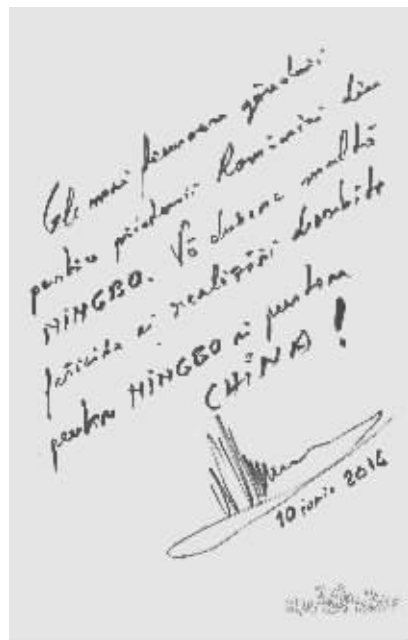 Cele mai frumoase gânduri
pentru prietenii României din
NINGBO. Vă doresc multă
fericire și realizări deosebite
pentru NINGBO și pentru
CHINA!
10 iunie 2016